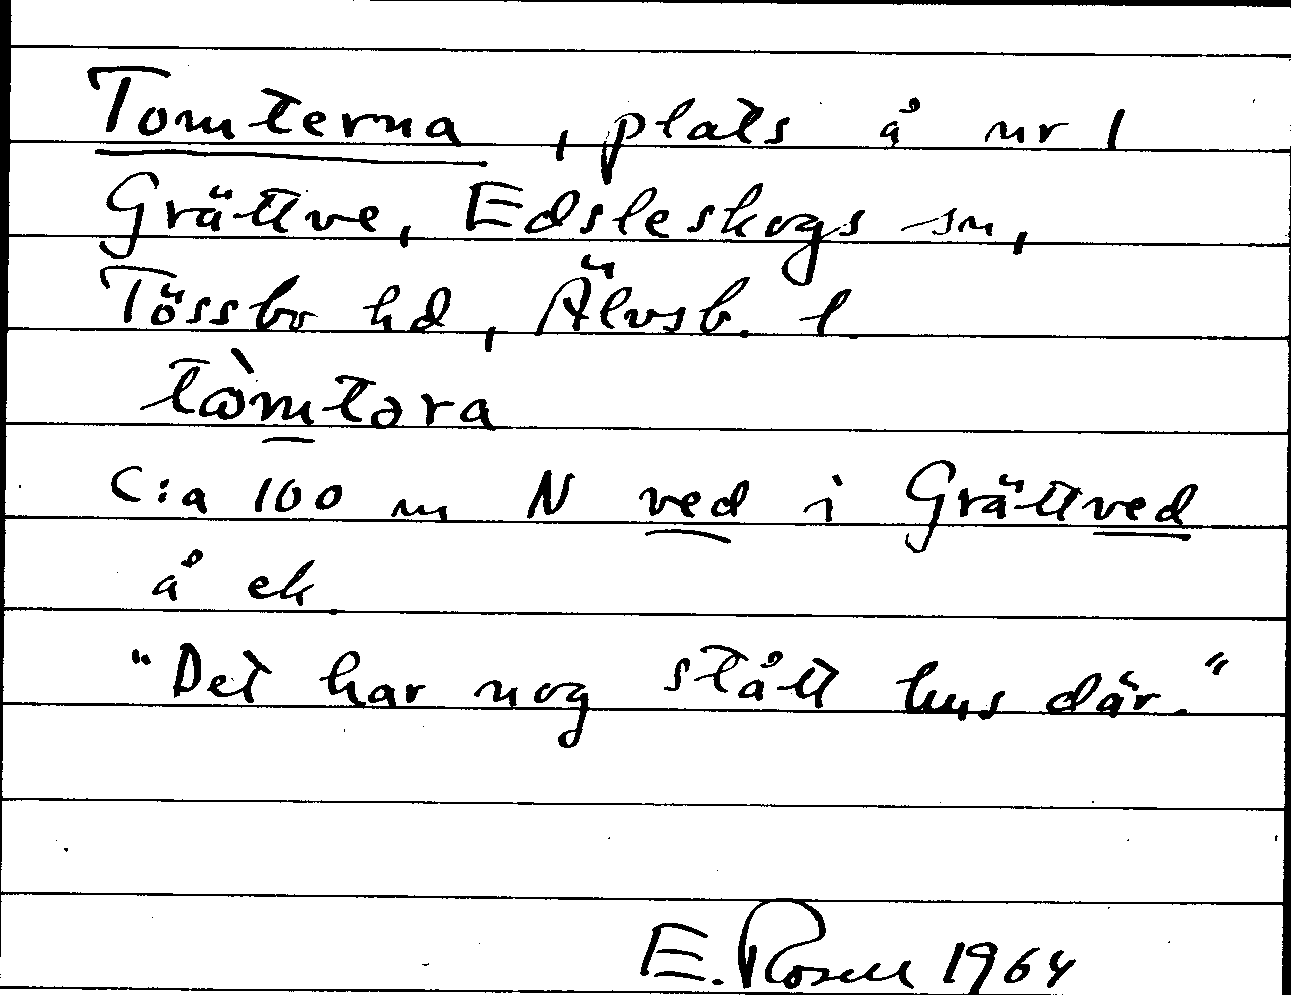 Tomterna, plats å nr 1
Grättve, Edsleskogs sn,
Tössbo hd, Älvsb. l
tòmtəra
C:a 100 m N ved i Grättved
å ek.
"Det har nog stått hus där."
E. Rosell 1964